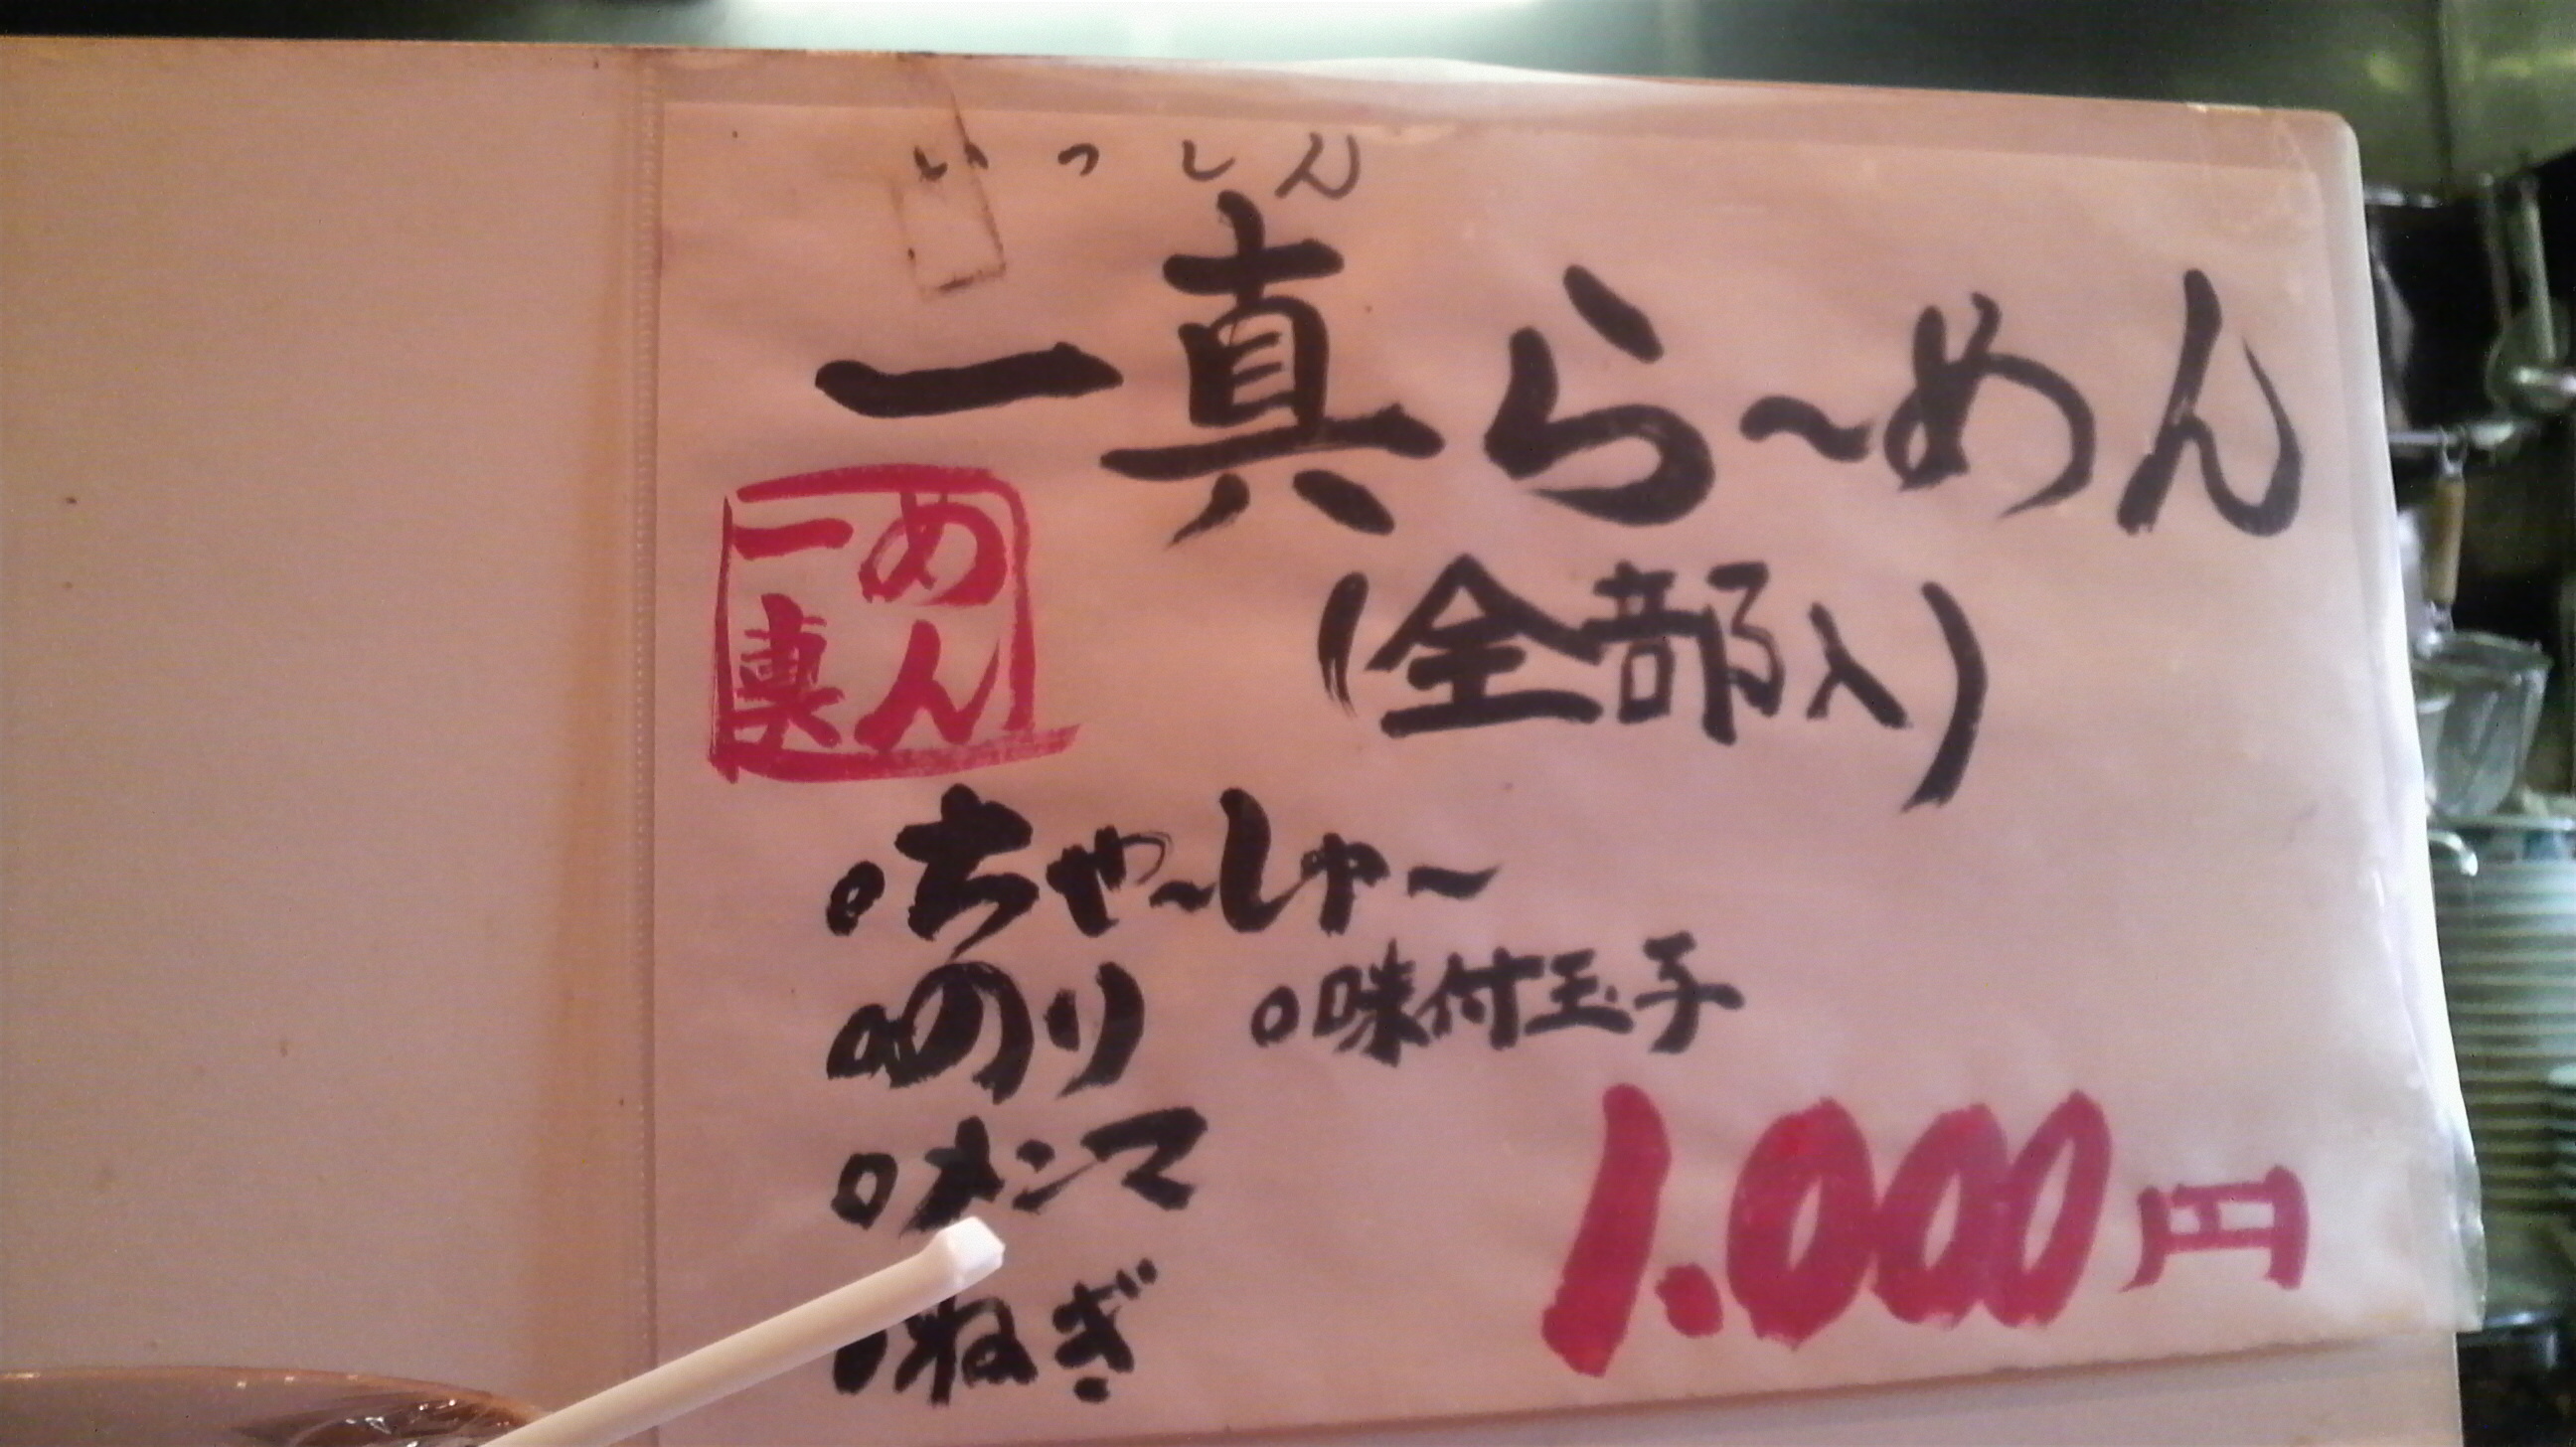 いっしん
一真ら～めん
(全部入)
めん
一真
○ちゃ～しゅ～
○のり ○味付玉子
○メンマ
○ねぎ
1.000円